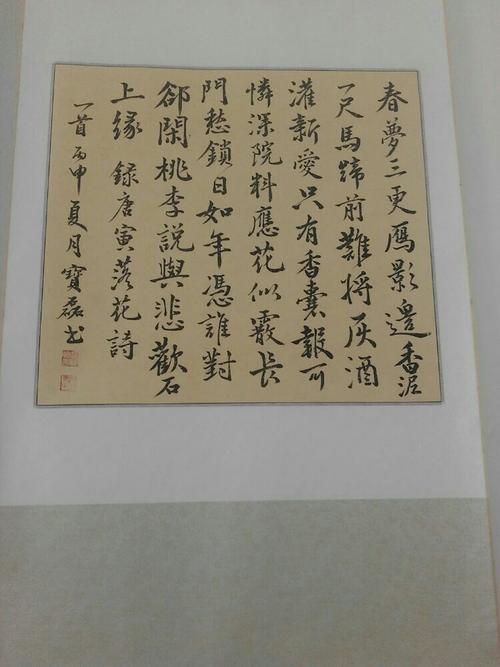 春夢三更鴈影邊香泥
一尺馬蹄前難將灰酒
灌新愛只有香囊報可
憐深院料應花似霰長
門愁鎖日如年憑誰對
郤閑桃李說與悲歡石
上緣 録唐寅落花詩
一首丙申夏月寶磊书